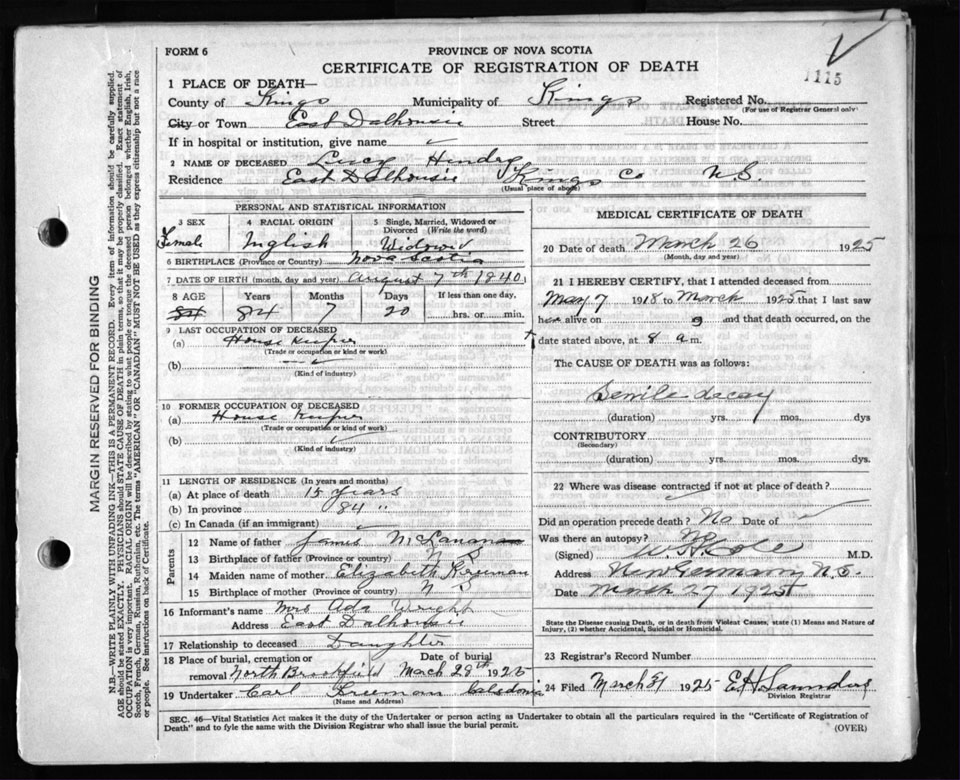 1115
FORM 6
PROVINCE OF NOVA SCOTIA
CERTIFICATE OF REGISTRATION OF DEATH
1 PLACE OF DEATH—
County of Kings Municipality of Kings Registered No.
(For use of Registrar General only)
City or Town East Dalhousie Street House No.
If in hospital or institution, give name
2 NAME OF DECEASED Lucy
Residence East Dalhousie Kings Co N.S.
(Usual place of abode)
PERSONAL AND STATISTICAL INFORMATION
3 SEX 4 RACIAL ORIGIN 5 Single, Married, Widowed or Divorced (Write the word)
Female Inglish Widowed
6 BIRTHPLACE (Province or Country) Nova Scotia
7 DATE OF BIRTH (month, day and year) August 7th 1840
8 AGE Years Months Days If less than one day,
84 84 7 20 hrs. or min.
9 LAST OCCUPATION OF DECEASED
(a) House Keeper
(Trade or occupation or kind or work)
(b)
(Kind of industry)
10 FORMER OCCUPATION OF DECEASED
(a) House Keeper
(Trade or occupation or kind of work)
(b)
(Kind of industry)
11 LENGTH OF RESIDENCE (In years and months)
(a) At place of death 15 years
(b) In province 84 "
(c) In Canada (if an immigrant)
Parents
12 Name of father James
13 Birthplace of father (Province or country) N S
14 Maiden name of mother Elizabeth Freeman
15 Birthplace of mother (Province or country) N S
16 Informant's name Mrs Ada Wright
Address East Dalhousie
17 Relationship to deceased Daughter
18 Place of burial, cremation or removal Date of burial
North Brookfield March 28th 1925
19 Undertaker Carl Freeman Caledonia
(Name and Address)
MEDICAL CERTIFICATE OF DEATH
20 Date of death March 26 1925
(Month, day and year)
21 I HEREBY CERTIFY, that I attended deceased from
May 7 1918 to March 1925 that I last saw
her alive on and that death occurred, on the
date stated above, at 8 a.m.
The CAUSE OF DEATH was as follows:
Senile decay
(duration) yrs. mos. dys
CONTRIBUTORY
(Secondary)
(duration) yrs. mos. dys.
22 Where was disease contracted if not at place of death?
Did an operation precede death? No Date of
Was there an autopsy? No
(Signed) W H Cole M.D.
Address New Germany N.S.
Date March 27 1925
State the Disease causing Death, or in death from Violent Causes, state (1) Means and Nature of
Injury, (2) whether Accidental, Suicidal or Homicidal.
23 Registrar's Record Number
24 Filed March 31 1925 E H Saunders
Division Registrar
SEC. 46—Vital Statistics Act makes it the duty of the Undertaker or person acting as Undertaker to obtain all the particulars required in the "Certificate of Registration of
Death" and to fyle the same with the Division Registrar who shall issue the burial permit.
(OVER)
MARGIN RESERVED FOR BINDING
N.B.—WRITE PLAINLY WITH UNFADING INK—THIS IS A PERMANENT RECORD. Every item of information should be carefully supplied.
AGE should be stated EXACTLY. PHYSICIANS should STATE CAUSE OF DEATH in plain terms, so that it may be properly classified. Exact statement of
OCCUPATION is very important. RACIAL ORIGIN will be described by stating to what people or tongue the deceased person belonged whether English, Irish,
Scotch, French, German, Russian, Ruthenian, etc. The terms "AMERICAN" OR "CANADIAN" MUST NOT BE USED as they express citizenship but not a race
or people. See instructions on back of Certificate.